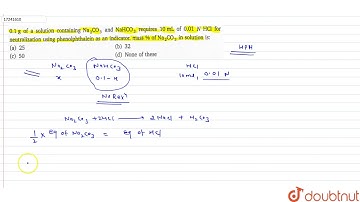 17241510
0.1 g of a solution containing Na2CO3 and NaHCO3 requires 10 mL of 0.01 N HCl for
neutralization using phenolphthalein as an indicator. mass % of Na2CO3 in solution is:
(a) 25 (b) 32
(c) 50 (d) None of these
HPH
Na2CO3 NaHCO3 HCl
x 0.1-x 10ml, 0.01 N
No Rxn?
Na2CO3 + 2HCl → 2NaCl + H2CO3
1/2 × Eq of Na2CO3 = Eq of HCl
doubtnut